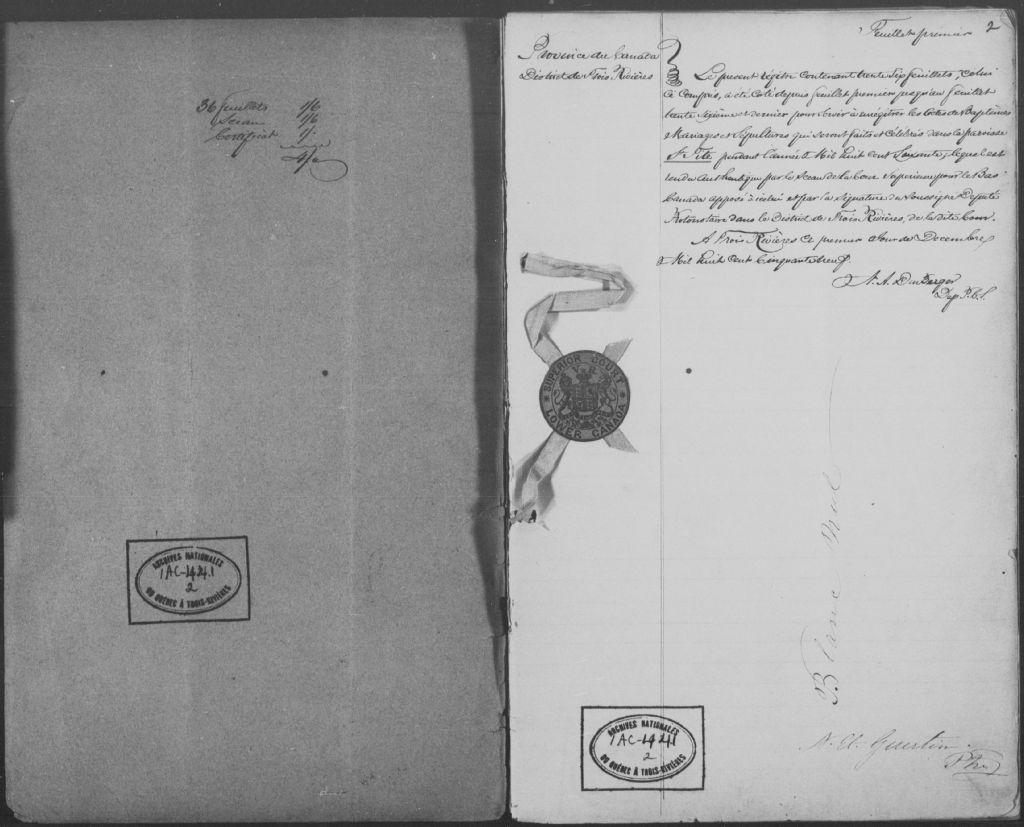 36 feuillets 1/6
Sceau 1/6
Certificat 1/.
4/.
ARCHIVES NATIONALES
1AC-1421.1
2
DU QUÉBEC À TROIS-RIVIÈRES
Feuillet premier 2
Province du Canada
District de Trois Rivières
Le présent régitre contenant trente Six feuillets, celui
Ci Compris, a été Coté depuis feuillet premier jusqu'au feuillet
trente Sixième et dernier pour Servir à enrégitrer les Actes de Baptêmes
Mariages et Sépultures qui seront faits et Célébrés dans la paroisse
St. Tite pendant l'année Mil huit cent Soixante, lequel est
rendu authentique par le Sceau de la Cour Supérieure pour le Bas-
Canada apposé à icelui et par la Signature du Soussigné Député
Protonotaire dans le District de Trois Rivières, de la dite Cour.
A Trois Rivières Ce premier Jour de Décembre
Mil huit cent Cinquante neuf.
Dep. P.C.S.
SUPERIOR COURT
LOWER CANADA
Blanc nul
ARCHIVES NATIONALES
1AC-1421
2
DU QUÉBEC À TROIS-RIVIÈRES